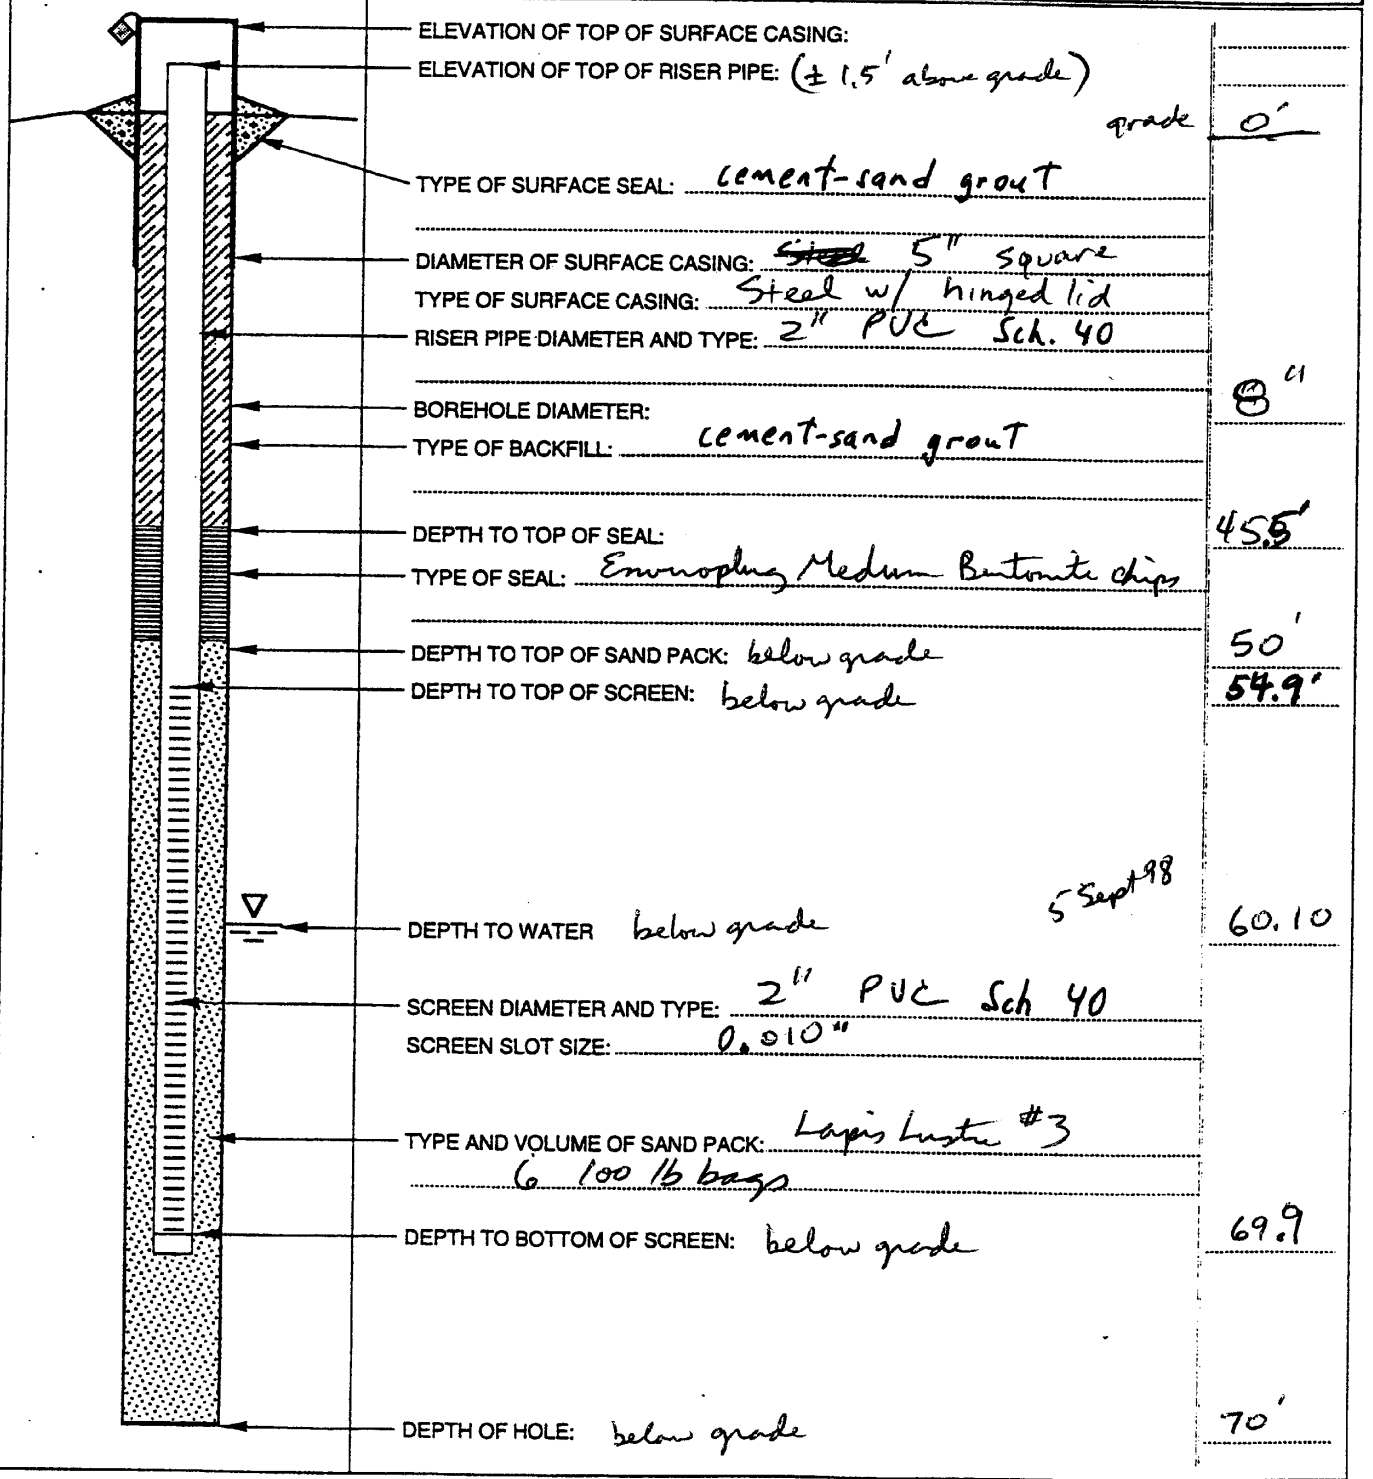 ELEVATION OF TOP OF SURFACE CASING:
ELEVATION OF TOP OF RISER PIPE: (± 1.5' above grade)
grade 0'
TYPE OF SURFACE SEAL: cement-sand grout
DIAMETER OF SURFACE CASING: Steel 5" square
TYPE OF SURFACE CASING: Steel w/ hinged lid
RISER PIPE DIAMETER AND TYPE: 2" PVC Sch. 40
BOREHOLE DIAMETER: 8"
TYPE OF BACKFILL: cement-sand grout
DEPTH TO TOP OF SEAL: 45.5'
TYPE OF SEAL: Enviroplug Medium Bentonite chips
DEPTH TO TOP OF SAND PACK: below grade 50'
DEPTH TO TOP OF SCREEN: below grade 54.9'
5 Sept 98
DEPTH TO WATER below grade 60.10
SCREEN DIAMETER AND TYPE: 2" PVC Sch 40
SCREEN SLOT SIZE: 0.010"
TYPE AND VOLUME OF SAND PACK: Lapis Lustre #3
6 100 lb bags
DEPTH TO BOTTOM OF SCREEN: below grade 69.9
DEPTH OF HOLE: below grade 70'